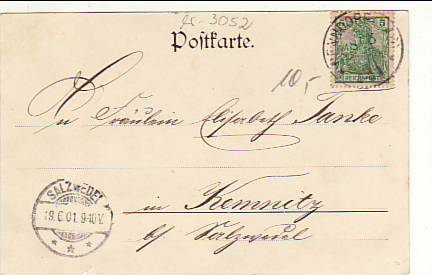 fr-3052
Postkarte.
5
10,-
An Fräulein Elisabeth Tanke
in Kemnitz
b/ Salzwedel
SALZWEDEL
19.6.01.9-10V.